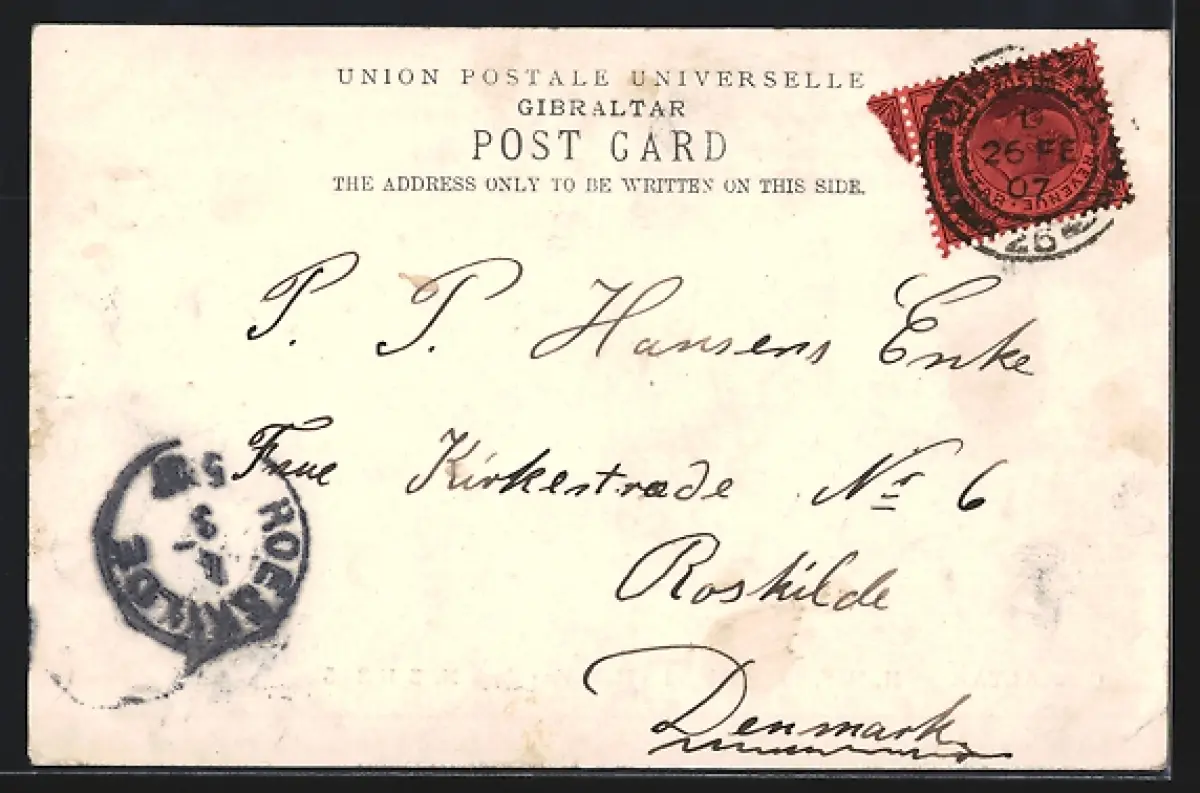 UNION POSTALE UNIVERSELLE
GIBRALTAR
POST CARD
THE ADDRESS ONLY TO BE WRITTEN ON THIS SIDE.
26 FE
07
26
REVENUE
P. P. Hansens Enke
Frue Kirkestræde Nr 6
Roskilde
Denmark
ROESKILDE
4
3
5